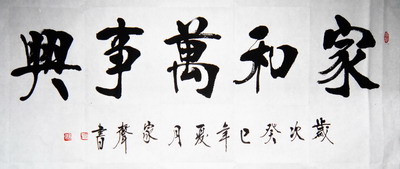 家和萬事興
歲次癸巳年夏月家聲書